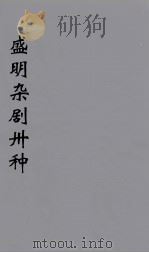 盛明杂剧卅种
mtoou.info